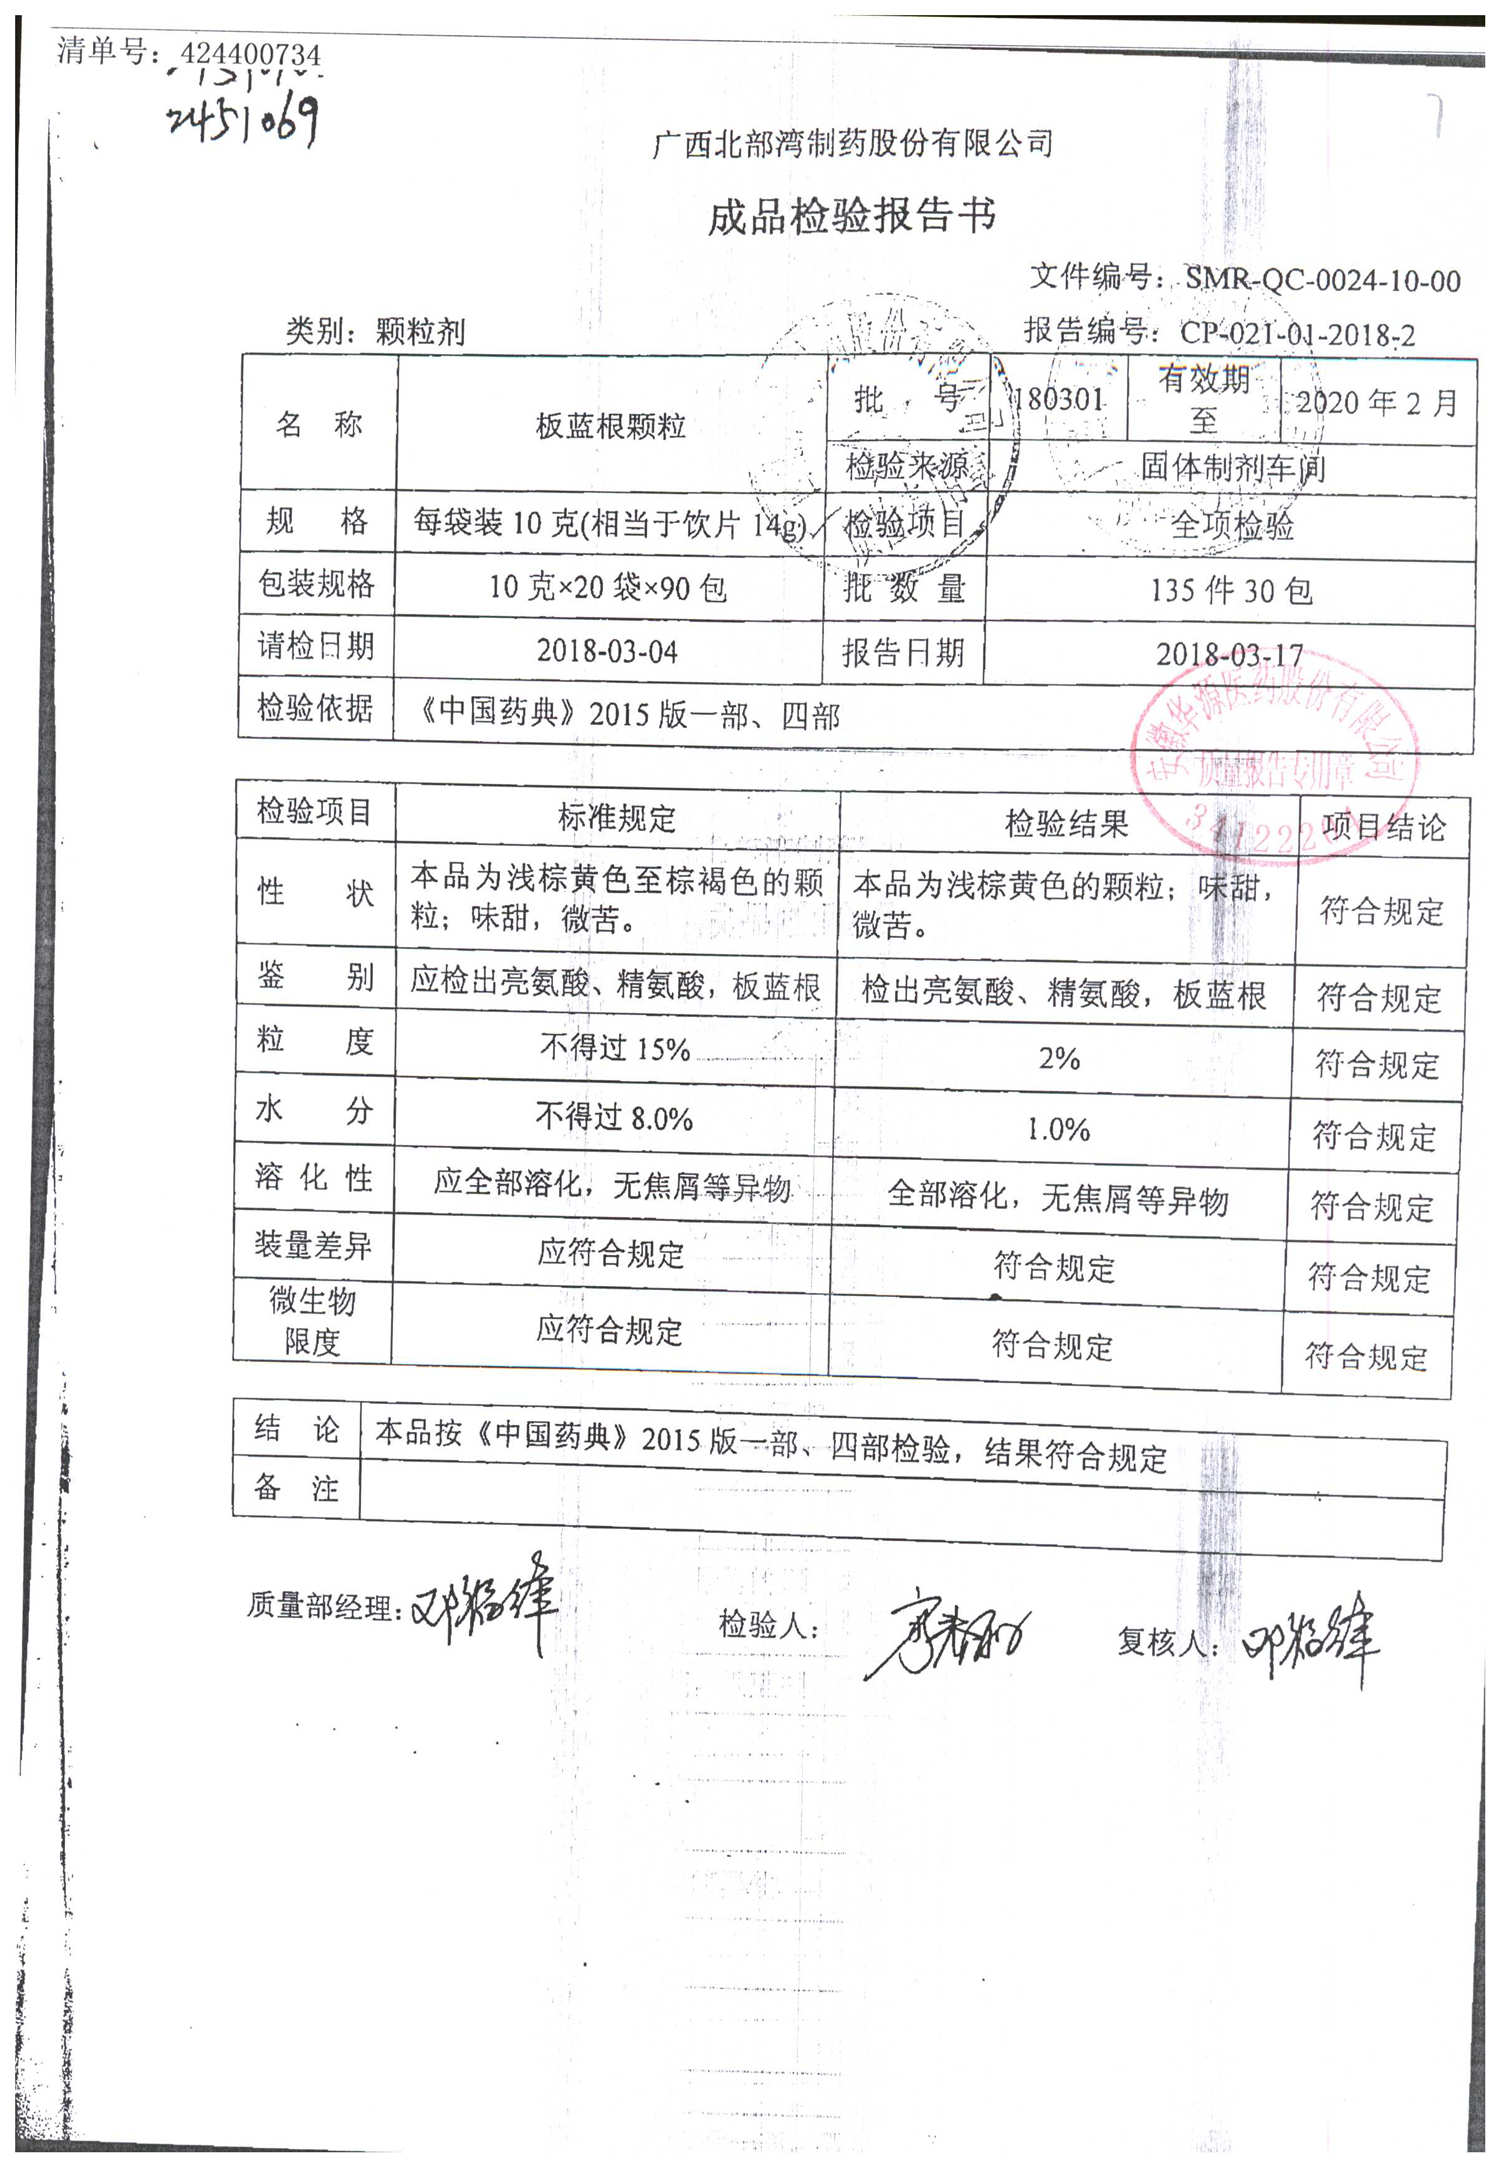 清单号：424400734
2451069
广西北部湾制药股份有限公司
成品检验报告书
文件编号：SMR-QC-0024-10-00
类别：颗粒剂 报告编号：CP-021-01-2018-2
名 称 板蓝根颗粒 批 号 180301 有效期至 2020 年 2 月
检验来源 固体制剂车间
规 格 每袋装 10 克(相当于饮片 14g) 检验项目 全项检验
包装规格 10 克×20 袋×90 包 批 数 量 135 件 30 包
请检日期 2018-03-04 报告日期 2018-03-17
检验依据 《中国药典》2015 版一部、四部
安徽华源医药股份有限公司
质量报告专用章
检验项目 标准规定 检验结果 项目结论
性 状 本品为浅棕黄色至棕褐色的颗粒；味甜，微苦。 本品为浅棕黄色的颗粒；味甜，微苦。 符合规定
鉴 别 应检出亮氨酸、精氨酸，板蓝根 检出亮氨酸、精氨酸，板蓝根 符合规定
粒 度 不得过 15% 2% 符合规定
水 分 不得过 8.0% 1.0% 符合规定
溶 化 性 应全部溶化，无焦屑等异物 全部溶化，无焦屑等异物 符合规定
装量差异 应符合规定 符合规定 符合规定
微生物限度 应符合规定 符合规定 符合规定
结 论 本品按《中国药典》2015 版一部、四部检验，结果符合规定
备 注
质量部经理： 检验人： 复核人：